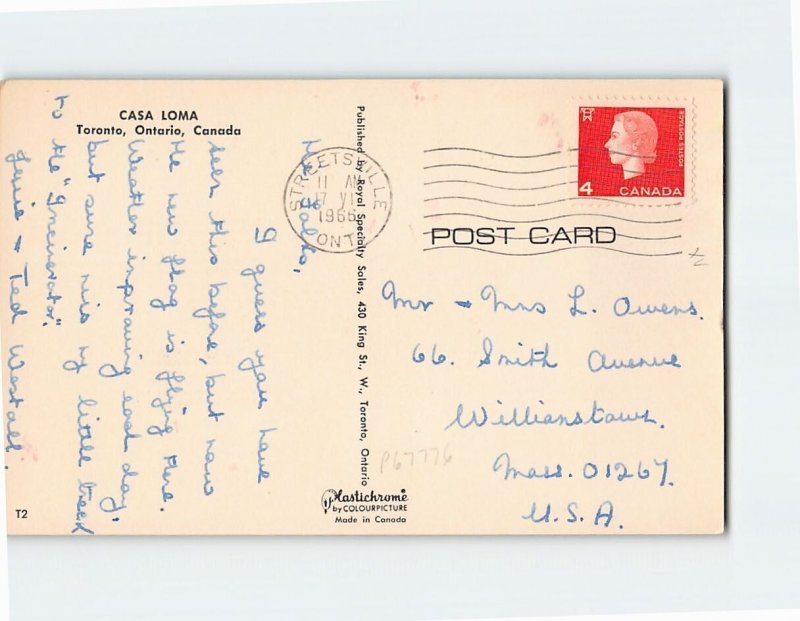 CASA LOMA
Toronto, Ontario, Canada
Hi Folks,
I guess you have
seen this before, but now
the new flag is flying there.
Weather improving each day,
but sure miss my little treck
to the "Incinerator".
Ted Westall.
T2
Published by Royal Specialty Sales, 430 King St., W., Toronto, Ontario
Plastichrome
by COLOURPICTURE
Made in Canada
STREETSVILLE
11 AM
17 VI
1966
ONT
4
CANADA
POSTES POSTAGE
POST CARD
Mr + Mrs L. Owens.
66. Smith Avenue
Williamstown.
Mass. 01267.
U.S.A.
P67776